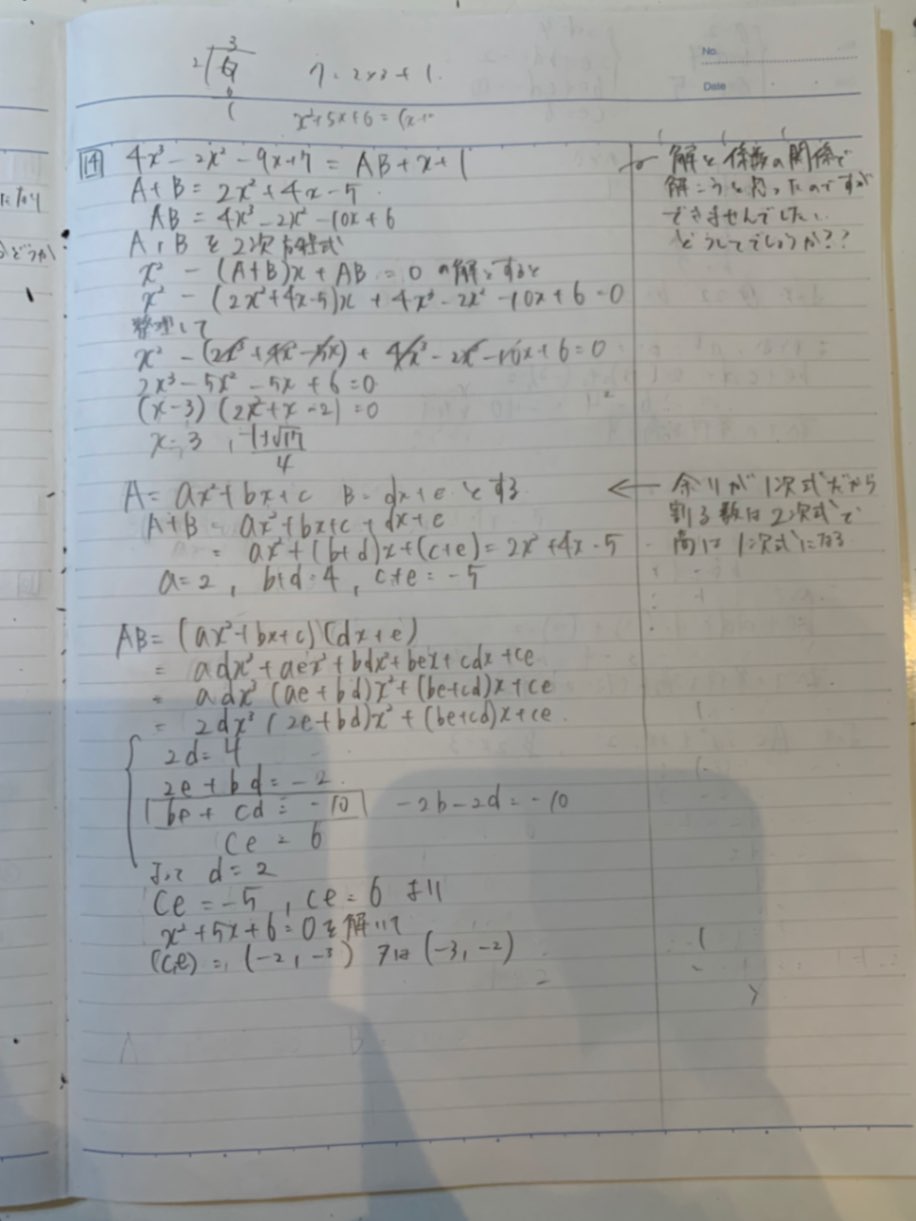 No.
Date
3
2
7 = 2×3 + 1.
1
x²+5x+6 = (x+
14 4x³ - 2x² - 9x+7 = AB + x + 1
A + B = 2x² + 4x - 5
AB = 4x³ - 2x² - 10x + 6
A, B を 2次方程式
x² - (A+B)x + AB = 0 の解とすると
x² - (2x²+4x-5)x + 4x³ - 2x² - 10x + 6 = 0
整理して
x² - (2x³ + 4x² - 5x) + 4x³ - 2x² - 10x + 6 = 0
2x³ - 5x² - 5x + 6 = 0
(x-3) (2x²+x-2) = 0
x = 3 , -1±√17/4
解と係数の関係で
解こうと思ったのですが
できませんでした。
どうしてでしょうか??
A = ax²+bx+c B = dx+e とする
A+B = ax²+bx+c+dx+e
= ax²+(b+d)x+(c+e) = 2x²+4x-5
a = 2 , b+d = 4 , c+e = -5
← 余りが1次式だから
割る数は2次式で
商は1次式になる
AB = (ax²+bx+c)(dx+e)
= adx³+aex²+bdx²+bex+cdx+ce
= adx³ (ae+bd)x²+(be+cd)x+ce
= 2dx³ (2e+bd)x²+(be+cd)x+ce
2d = 4
2e + bd = -2
be + cd = -10 -2b-2d = -10
ce = 6
よって d = 2
Ce = -5 , ce = 6 より
x²+5x+6 = 0 を解いて
(c,e) = (-2, -3) または (-3, -2)